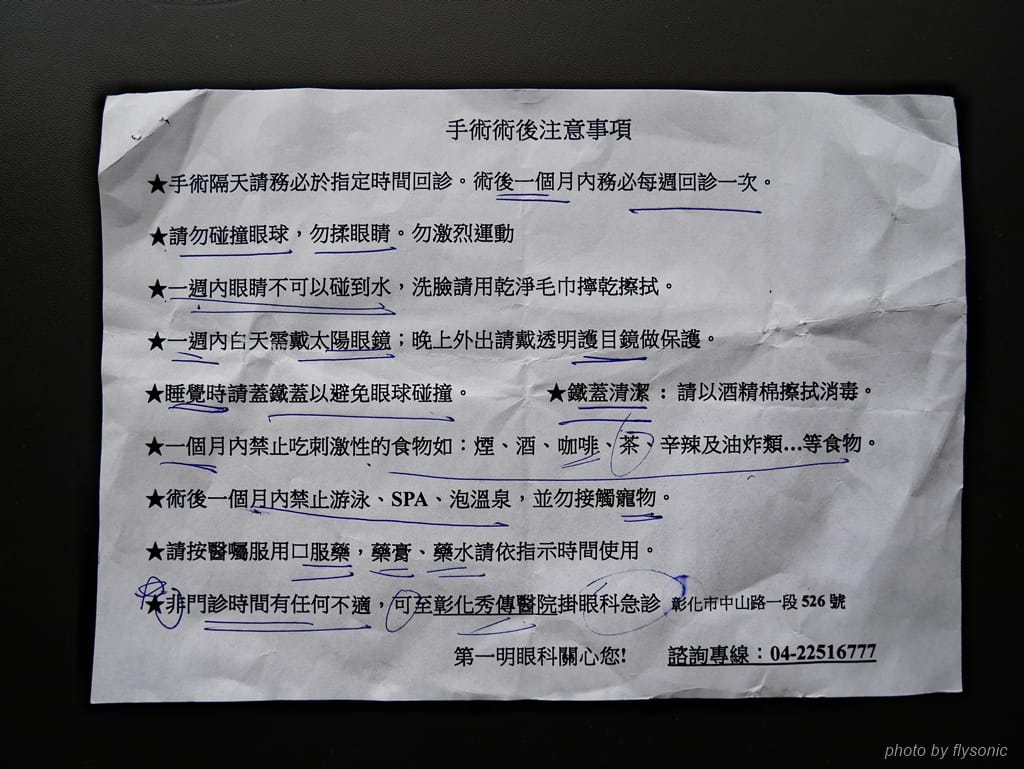 手術術後注意事項
★手術隔天請務必於指定時間回診。術後一個月內務必每週回診一次。
★請勿碰撞眼球，勿揉眼睛。勿激烈運動
★一週內眼睛不可以碰到水，洗臉請用乾淨毛巾擰乾擦拭。
★一週內白天需戴太陽眼鏡；晚上外出請戴透明護目鏡做保護。
★睡覺時請蓋鐵蓋以避免眼球碰撞。 ★鐵蓋清潔：請以酒精棉擦拭消毒。
★一個月內禁止吃刺激性的食物如：煙、酒、咖啡、茶、辛辣及油炸類…等食物。
★術後一個月內禁止游泳、SPA、泡溫泉，並勿接觸寵物。
★請按醫囑服用口服藥，藥膏、藥水請依指示時間使用。
★非門診時間有任何不適，可至彰化秀傳醫院掛眼科急診 彰化市中山路一段 526 號
第一明眼科關心您! 諮詢專線：04-22516777
photo by flysonic